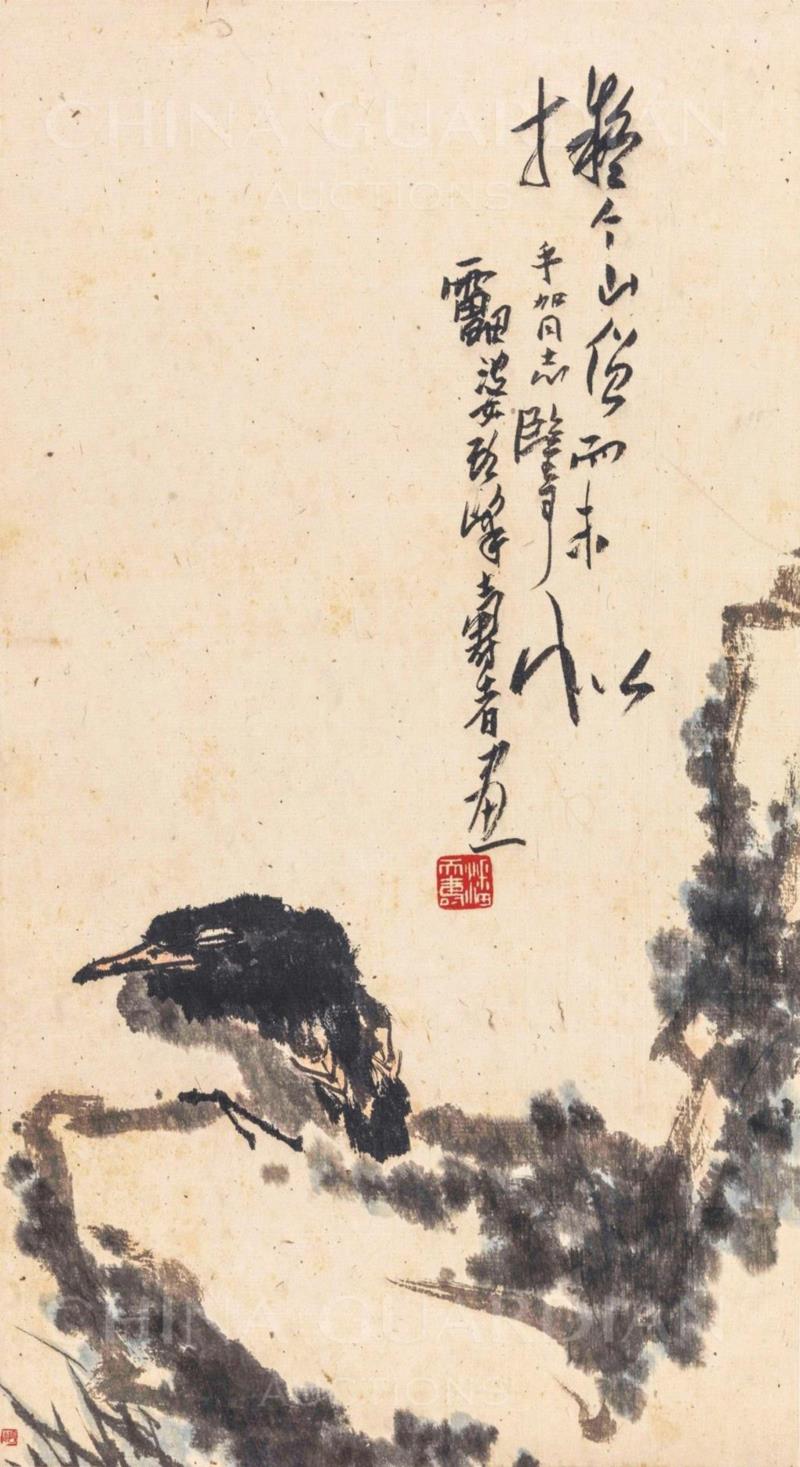 CHINA GUARDIAN
AUCTIONS
擬个山僧而未似
加同志鑒
雷婆頭峰壽者畫
CHINA GUARDIAN
AUCTIONS